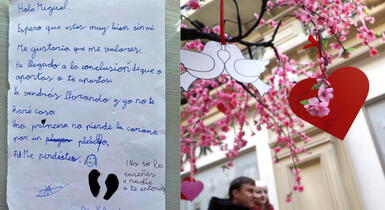 Hola Miguel.
Espero que estes muy bien sin mi.
Me gustaria que me valores.
He llegado a la conclusión, de que o
aportas o te apartas.
Ya vendrás llorando y yo no te
haré caso.
Una princesa no pierde la corona
por un plebello.
Pd: Me perdistes.
(No se la
enseñes
a nadie
o te enteras